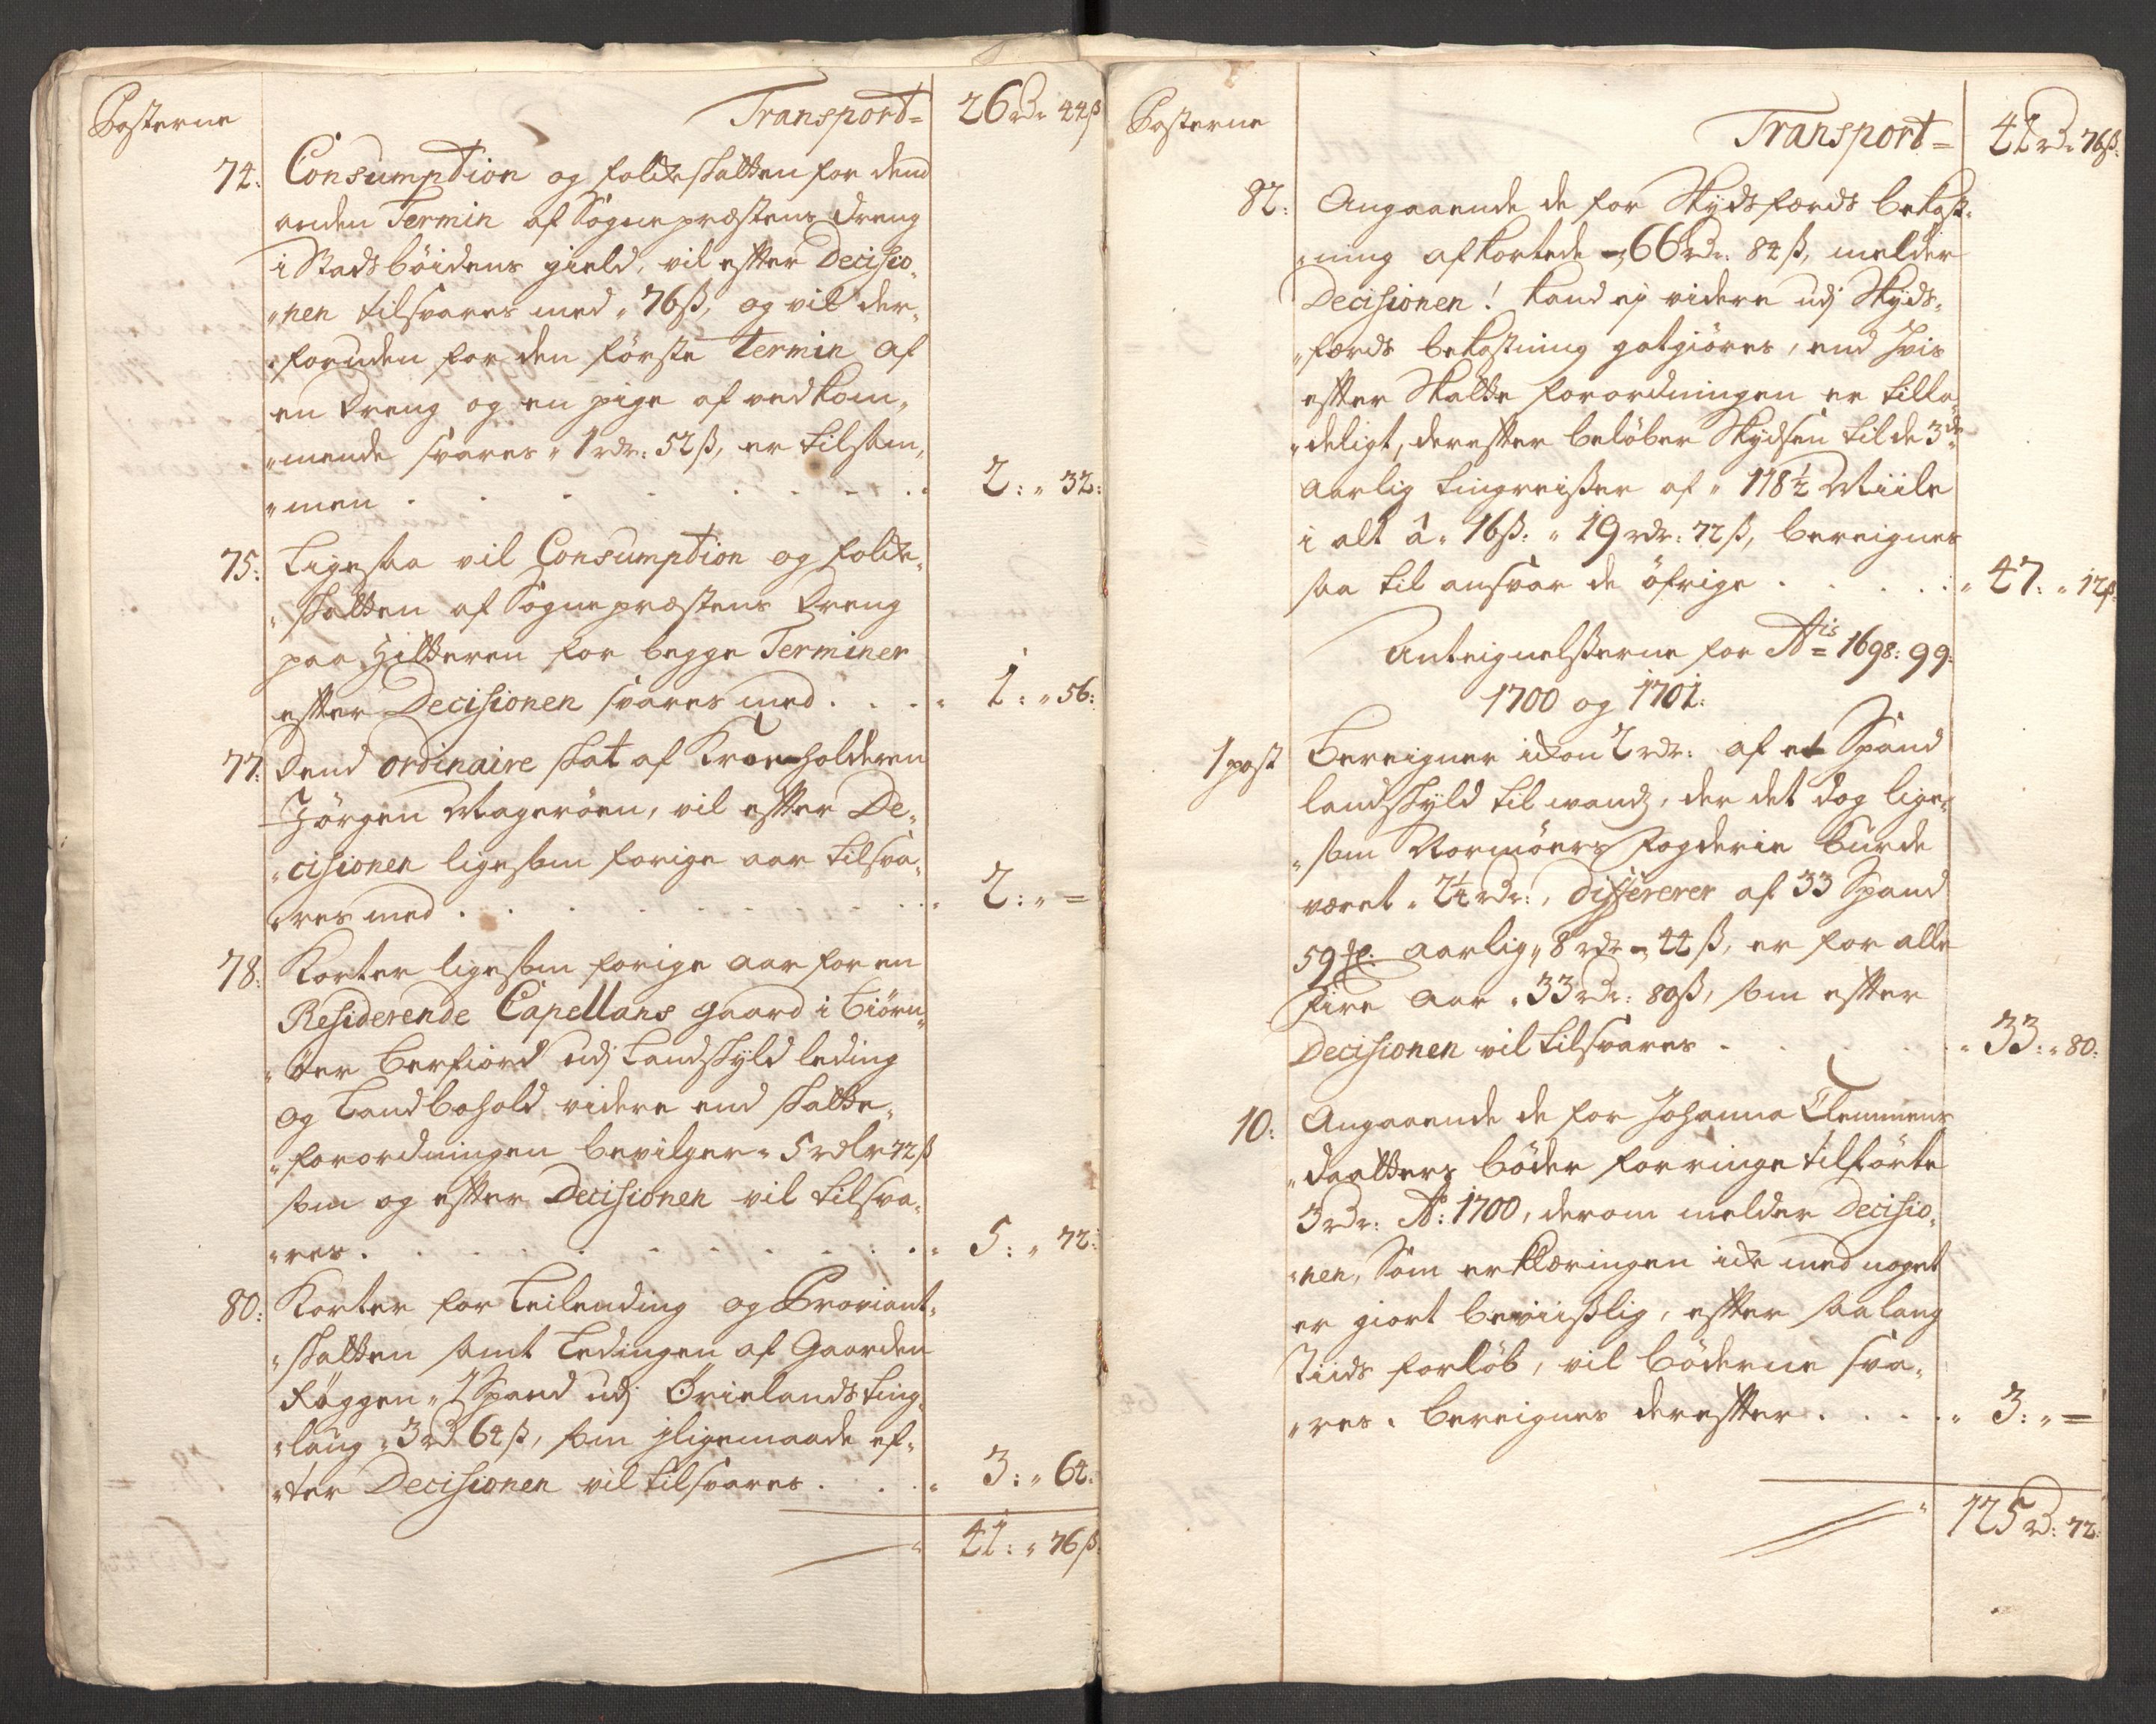 Posterne
Transport= 26 rdr 44ß
74: Consumption og folkeskatten for dend
anden Termin af Sognepræstens dreng
i Stadsbøidens gield, vil efter Decisio,,
,,nen tilsvares med ,, 76ß, og vil der,,
,,foruden for den første Termin af
en Dreng og en pige af vedkom,,
,,mende svares ,, 1 rdr: 52 ß, er tilsam,,
,,men . . . . . . . 2: ,, 32:
75: Ligesaa vil Consumption og folke,,
,,skatten af Sognepræstens Dreng
paa Hitteren for begge Terminer
efter Decisionen svares med . . . 1: ,, 56:
77: Dend ordinaire skat af Kroeholderen
Jørgen Magerøen, vil efter De,,
,,cisionen ligesom forige aar tilsva,,
,,res med . . . . . . . 2: ,, =
78: Korter ligesom forige aar for en
Residerende Capellans gaard i Biørn,,
,,øer berfiord udj Landskyld leding
og Landbohold videre end skatte,,
,,forordningen bevilger ,, 5 rdlr 72 ß
som og efter Decisionen vil tilsva,,
,,res . . . . . . . . . 5: ,, 72:
80: Korter for Leilending og Proviant,,
,,skatten samt Ledingen af Gaarden
Røggen ,, 2 Spand udj Ørielands ting,,
,,laug ,, 3 rd 64 ß, som jligemaade ef,,
,,ter Decisionen vil tilsvares . . . 3: ,, 64:
41: ,, 76 ß:
Posterne
Transport= 41 rd 76ß:
82: Angaaende de for Skydsfærds bekost,,
,,ning afkortede - 66 rdr: 84 ß, melder
Decisionen! kand ej videre udj Skyds,,
,,færds bekostning gotgiøres, end hvis
efter Skatte forordningen er tilla,,
,,deligt, derefter beløber Skydsen til de 3de
aarlig tingreißer af ,, 118½ Miile
i alt â ,, 16ß: ,, 19 rdr: 72 ß, bereignes
saa til ansvar de øfrige . . . . . 47: ,, 12ß:
Anteignelßerne for Ais= 1698: 99:
1700 og 1701:
1 post Bereigner ickon 2 rdr: af et Spand
landskyld til wands, der det dog lige,,
,,som Normøers fogderie burde
været ,, 2¼ rdr:, differerer af 33 Spand
aarlig ,, 8 rdr - 44 ß, er for alle
fire aar ,, 33 rdr: 80ß, som efter
Decisionen vil tilsvares . . . . . 33: ,, 80:
10: Angaaende de for Johanna Clemmens
,,daatters bøder forringe tilførte
3 rdr: Ao: 1700, derom melder Decisio,,
,,nen, Som erklæringen icke med noget
er giort beviißlig, efter saa lang
Tiids forløb, vil bøderne sva,,
,,res. bereignes derefter . . . . 3: ,, =
125 rd: 72: